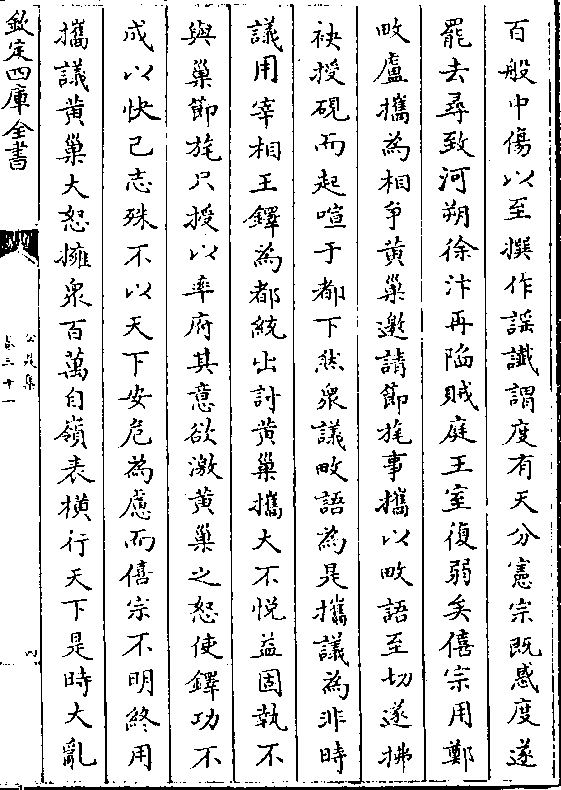 百般中傷以至撰作謡讖謂度有天分憲宗既惑度遂
罷去尋致河朔徐汴再陷賊庭王室復弱矣僖宗用鄭
畋盧攜為相爭黄巢邀請節旄事攜以畋語至切遂拂
袂投硯而起喧于都下然衆議畋語為是攜議為非時
議用宰相王鐸為都統出討黄巢攜大不悦益固執不
與巢節旄只授以率府其意欲激黄巢之怒使鐸功不
成以快己志殊不以天下安危為慮而僖宗不明終用
攜議黄巢大怒擁衆百萬自嶺表横行天下是時大亂
欽定四庫全書
卷三十一